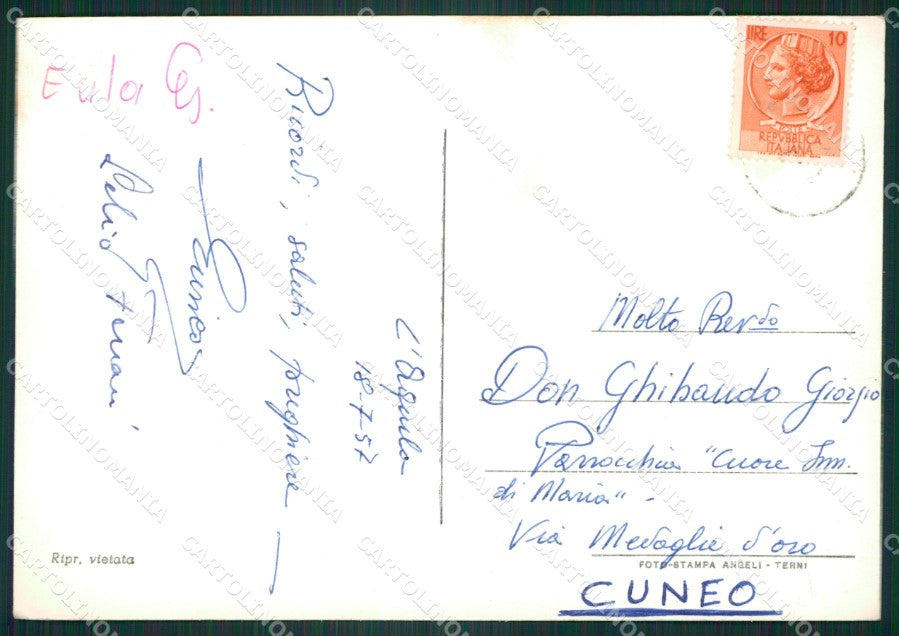 L'Aquila
18-7-57
Ricordi, saluti, preghiere
Enrico
LIRE 10
REPVBBLICA
ITALIANA
Molto Rev.do
Don Ghibaudo Giorgio
Parrocchia "Cuore Imm.
di Maria" -
Via Medaglie d'oro
CUNEO
Ripr. vietata
FOTO-STAMPA ANGELI - TERNI
CARTOLINOMANIA